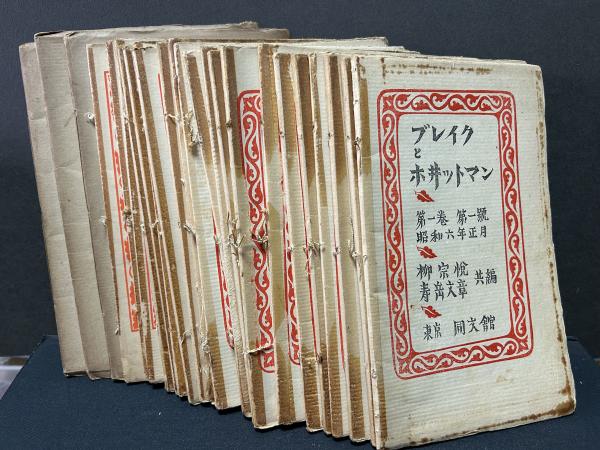 ブレイク
と
ホ井ットマン
第一巻 第一號
昭和六年正月
柳宗悦
寿岳文章
共編
東京 同文館